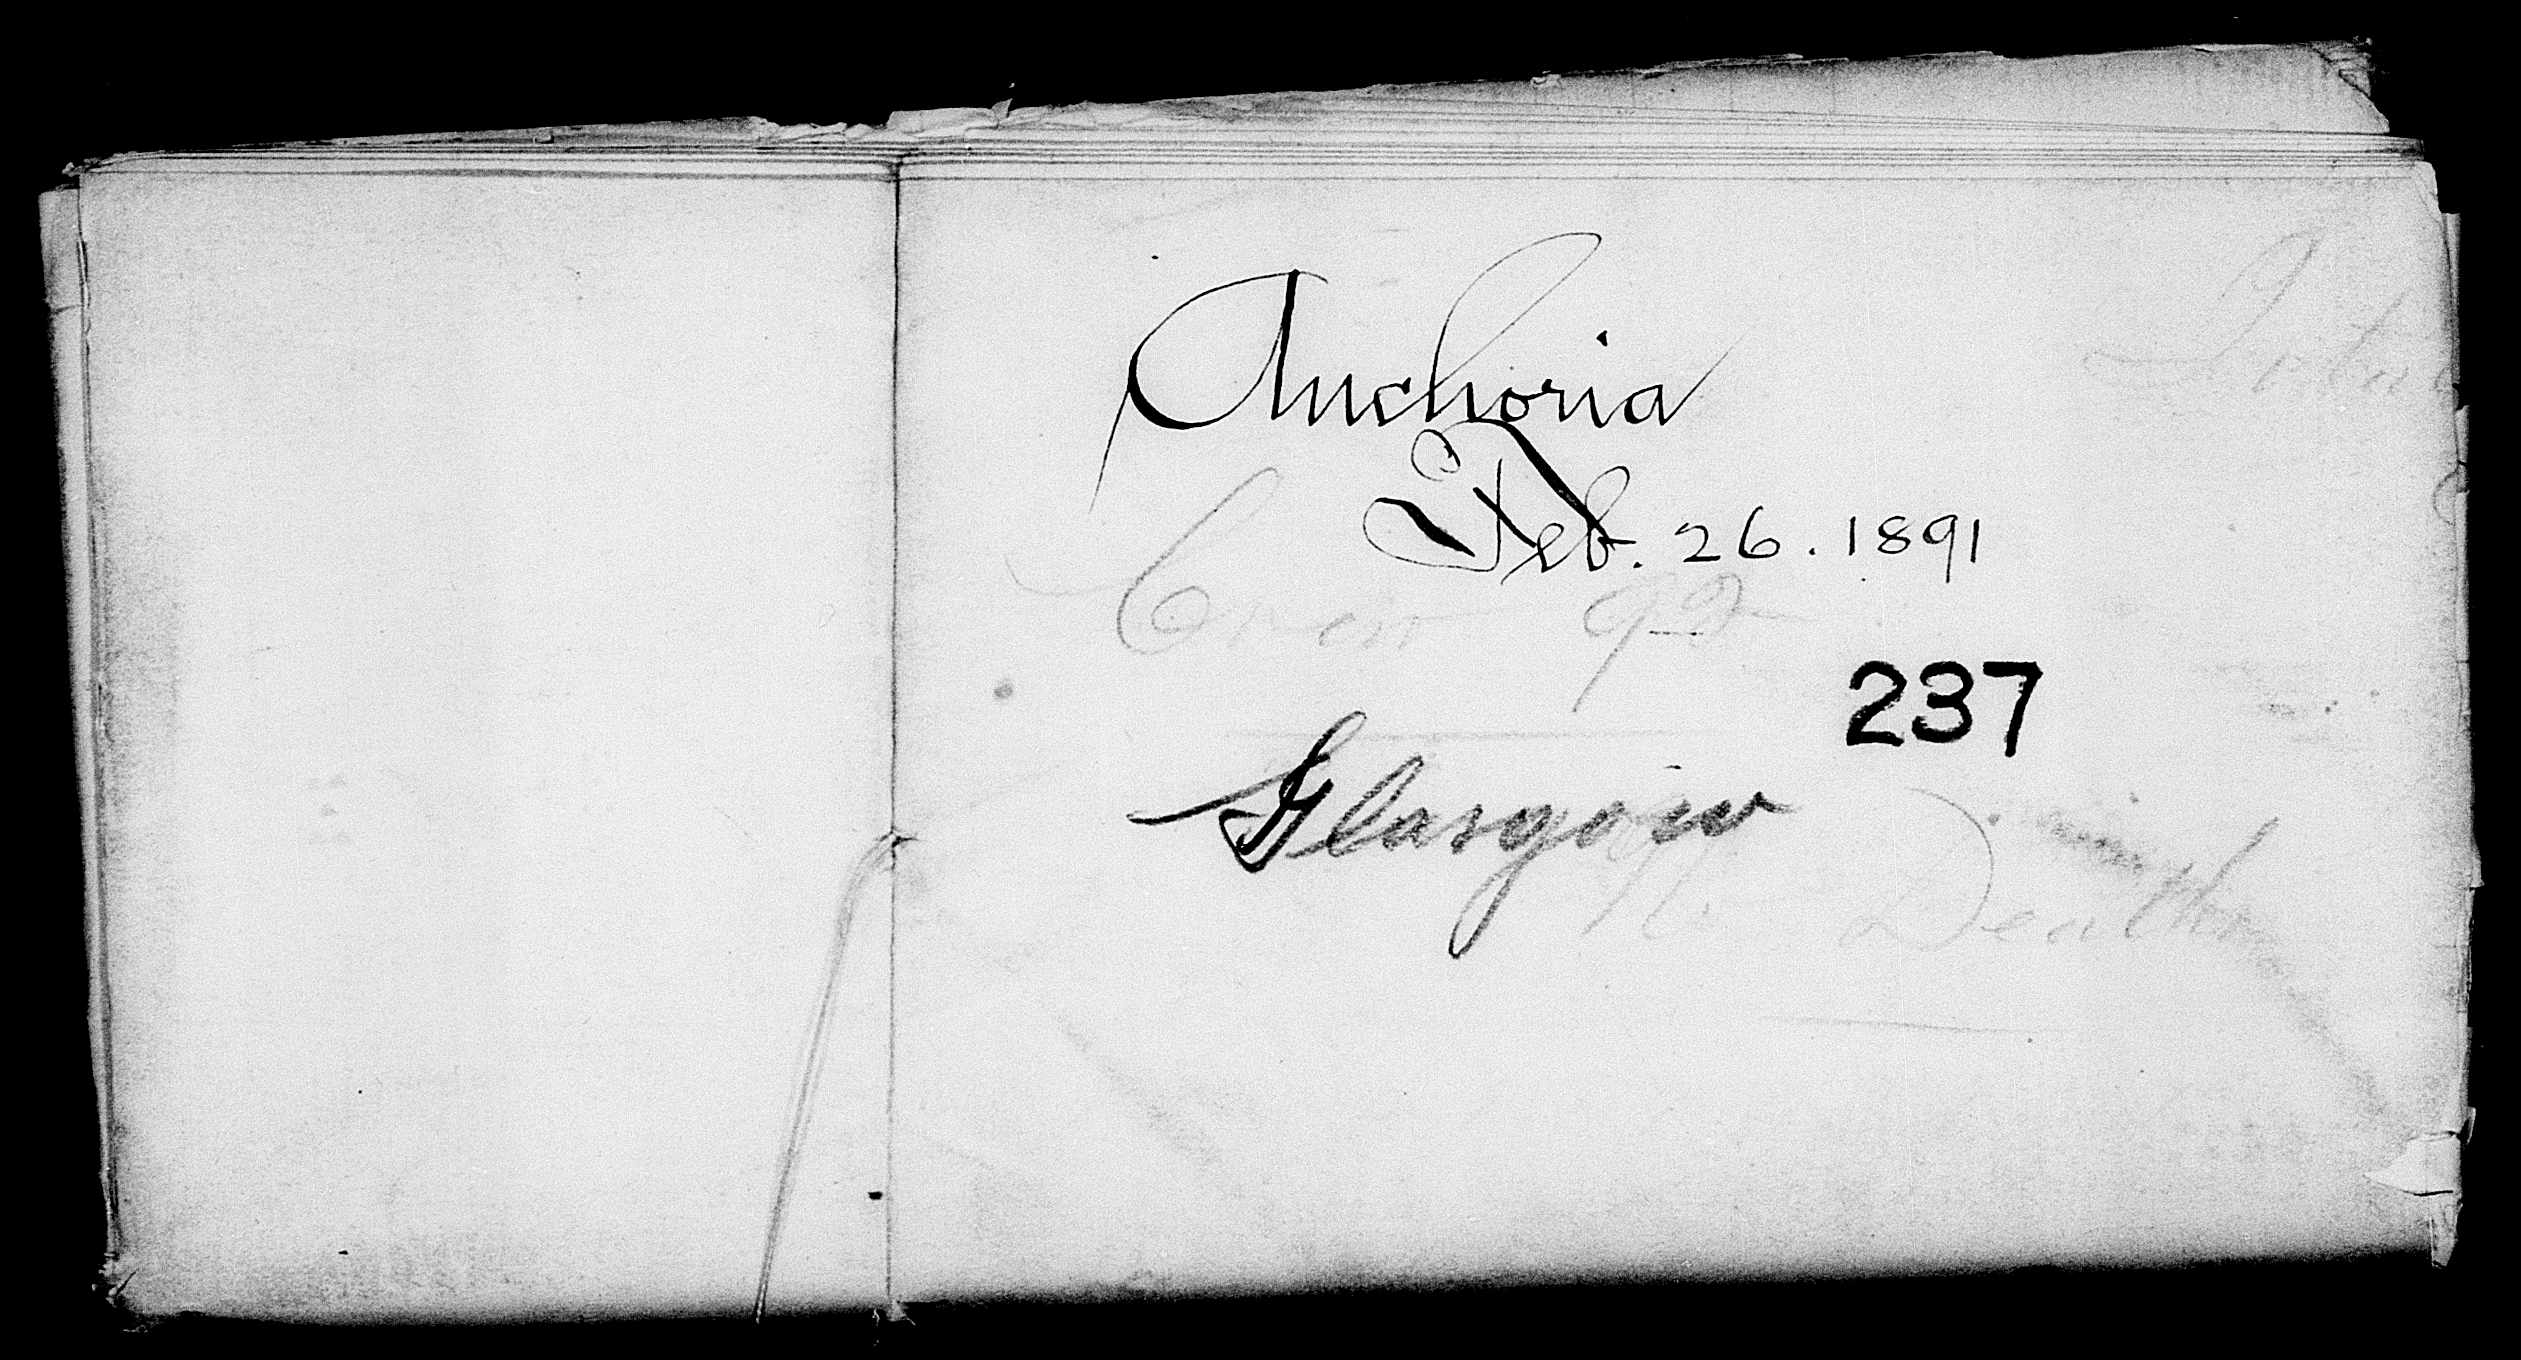 Anchoria
Feb. 26. 1891
Crew 92
237
Glasgow
Death